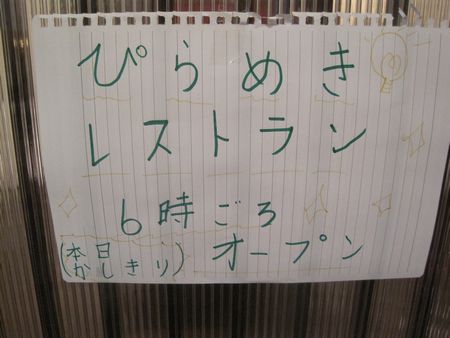 ぴらめき
レストラン
6時ごろ
(本日かしきり) オープン